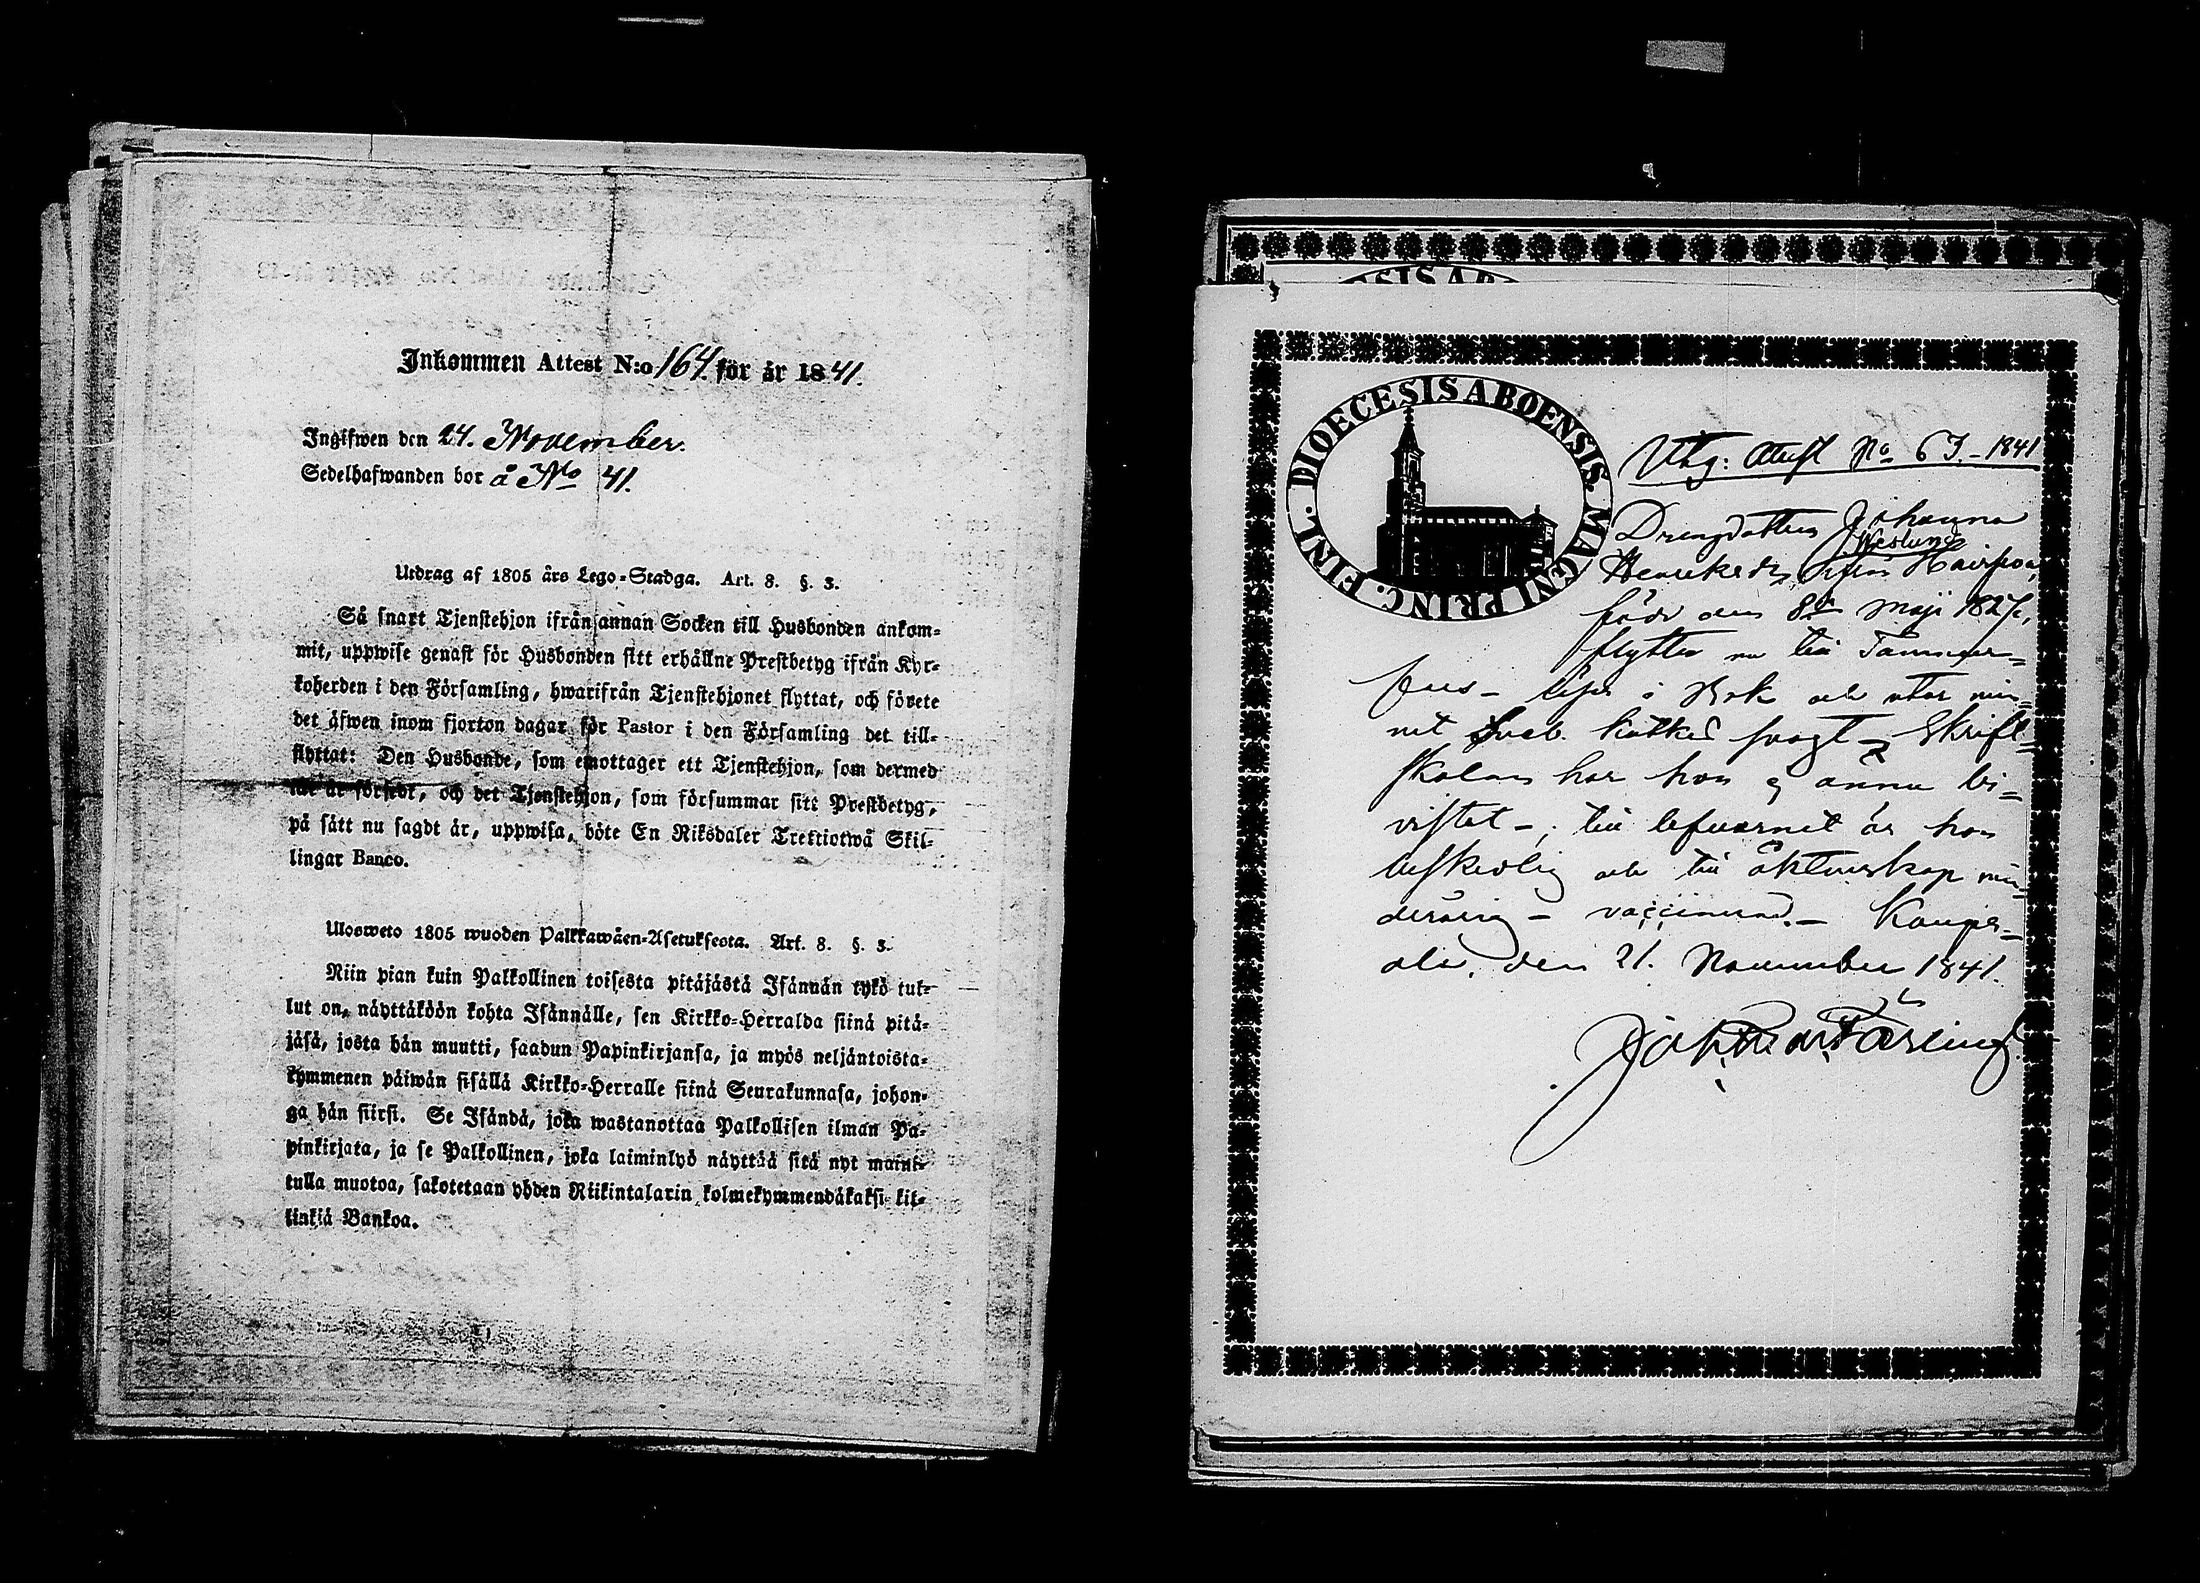 Inkommen Attest N:o 164. för år 1841.
Ingifwen den 24. November.
Sedelhafwanden bor å No 41.
Utdrag af 1805 års Lego-Stadga. Art. 8. §. 3.
Så snart Tjenstehjon ifrån annan Socken till Husbonden ankom-
mit, uppwise genast för Husbonden sitt erhållne Prestbetyg ifrån Kyr-
koherden i den Församling, hwarifrån Tjenstehjonet flyttat, och förete
det äfwen inom fjorton dagar för Pastor i den Församling det till-
flyttat: Den Husbonde, som emottager ett Tjenstehjon, som dermed
är försedt, och det Tjenstehjon, som försummar sitt Prestbetyg,
på sätt nu sagdt är, uppwisa, böte En Riksdaler Trettiotwå Skil-
lingar Banco.
Ulosweto 1805 wuoden Palkkawäen-Asetuksesta. Art. 8. §. 3.
Niin pian kuin Palkollinen toisesta pitäjästä Isännän tykö tul-
lut on, näyttäköön kohta Isännälle, sen Kirkko-Herralda siinä pitä-
jäsä, josta hän muutti, saadun Papinkirjansa, ja myös neljäntoista-
kymmenen päiwän sisällä Kirkko-Herralle siinä Seurakunnasa, johon-
ga hän siirsi. Se Isändä, joka wastanottaa Palkollisen ilman Pa-
pinkirjata, ja se Palkollinen, joka laiminlyö näyttää sitä nyt mainit-
tulla muotoa, sakotetaan yhden Riikintalarin kolmekymmendäkaksi kil-
linkiä Bankoa.
DIOECESIS ABOENSIS. MAGNI PRINC. FINL.
Utg: Attest No 63.- 1841
Drengdottren Johanna
Westlund
Henriksdr, ifrån
född den 8de Maji 1827,
flyttar nu till Tammer-
fors - läser i Bok och utan min-
net svagt - Skrift-
skolan har hon ej ännu bi-
vistat -; till lefvernet är hon
beskedlig och till äktenskap min-
derårig - vaccinerad. - Kangas-
ala, den 21. November 1841.